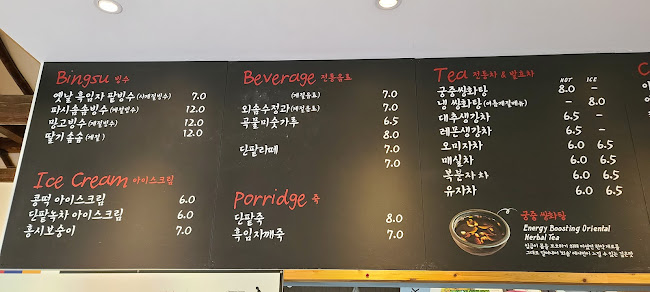 Bingsu 빙수
옛날 흑임자 팥빙수 (사계절빙수) 7.0
파시솜솜빙수 (계절빙수) 12.0
망고빙수 (계절빙수) 12.0
딸기 솜솜 (계절) 12.0
Ice Cream 아이스크림
콩떡 아이스크림 6.0
단팥녹차 아이스크림 6.0
홍시보숭이 7.0
Beverage 전통음료
(계절음료) 7.0
외솔수정과 (계절음료) 7.0
곡물미숫가루 6.5
8.0
단팥라떼 7.0
7.0
Porridge 죽
단팥죽 8.0
흑임자깨죽 7.0
Tea 전통차 & 발효차
HOT ICE
궁중쌍화탕 8.0 -
냉 쌍화탕 (여름계절메뉴) - 8.0
대추생강차 6.5 -
레몬생강차 6.5 -
오미자차 6.0 6.5
매실차 6.0 6.5
복분자차 6.0 6.5
유자차 6.0 6.5
궁중 쌍화탕
Energy Boosting Oriental
Herbal Tea
C